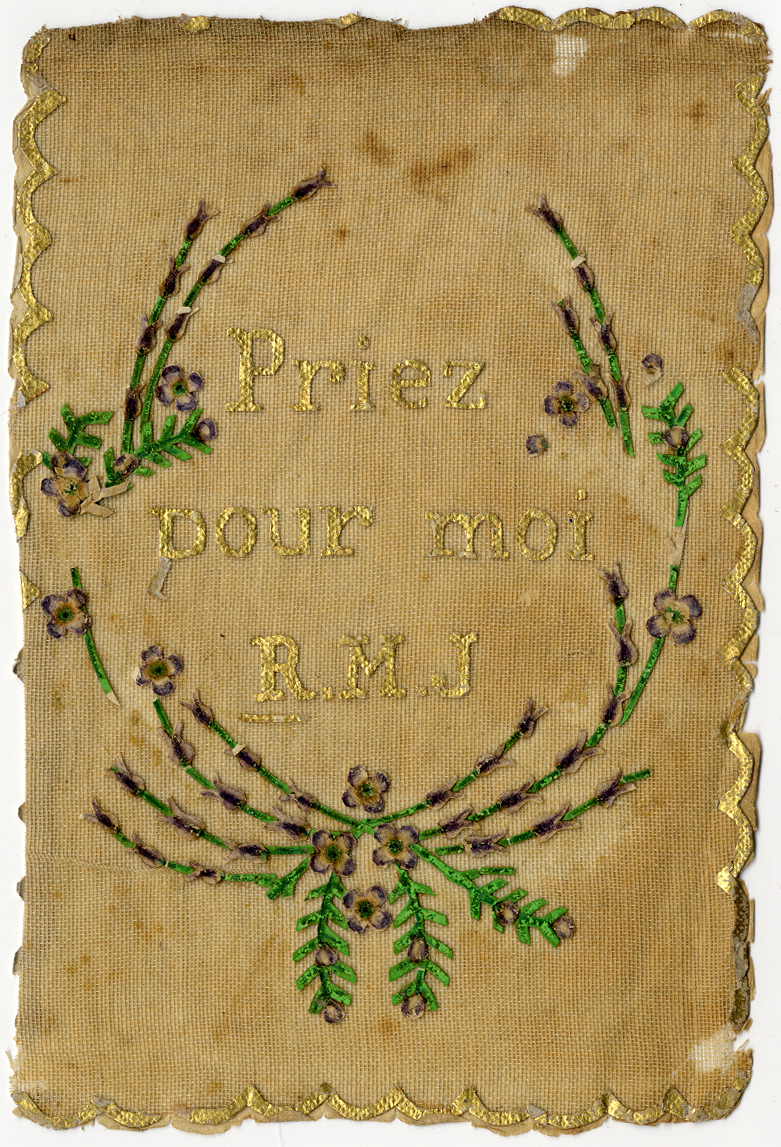 Priez
pour moi
R.M.J